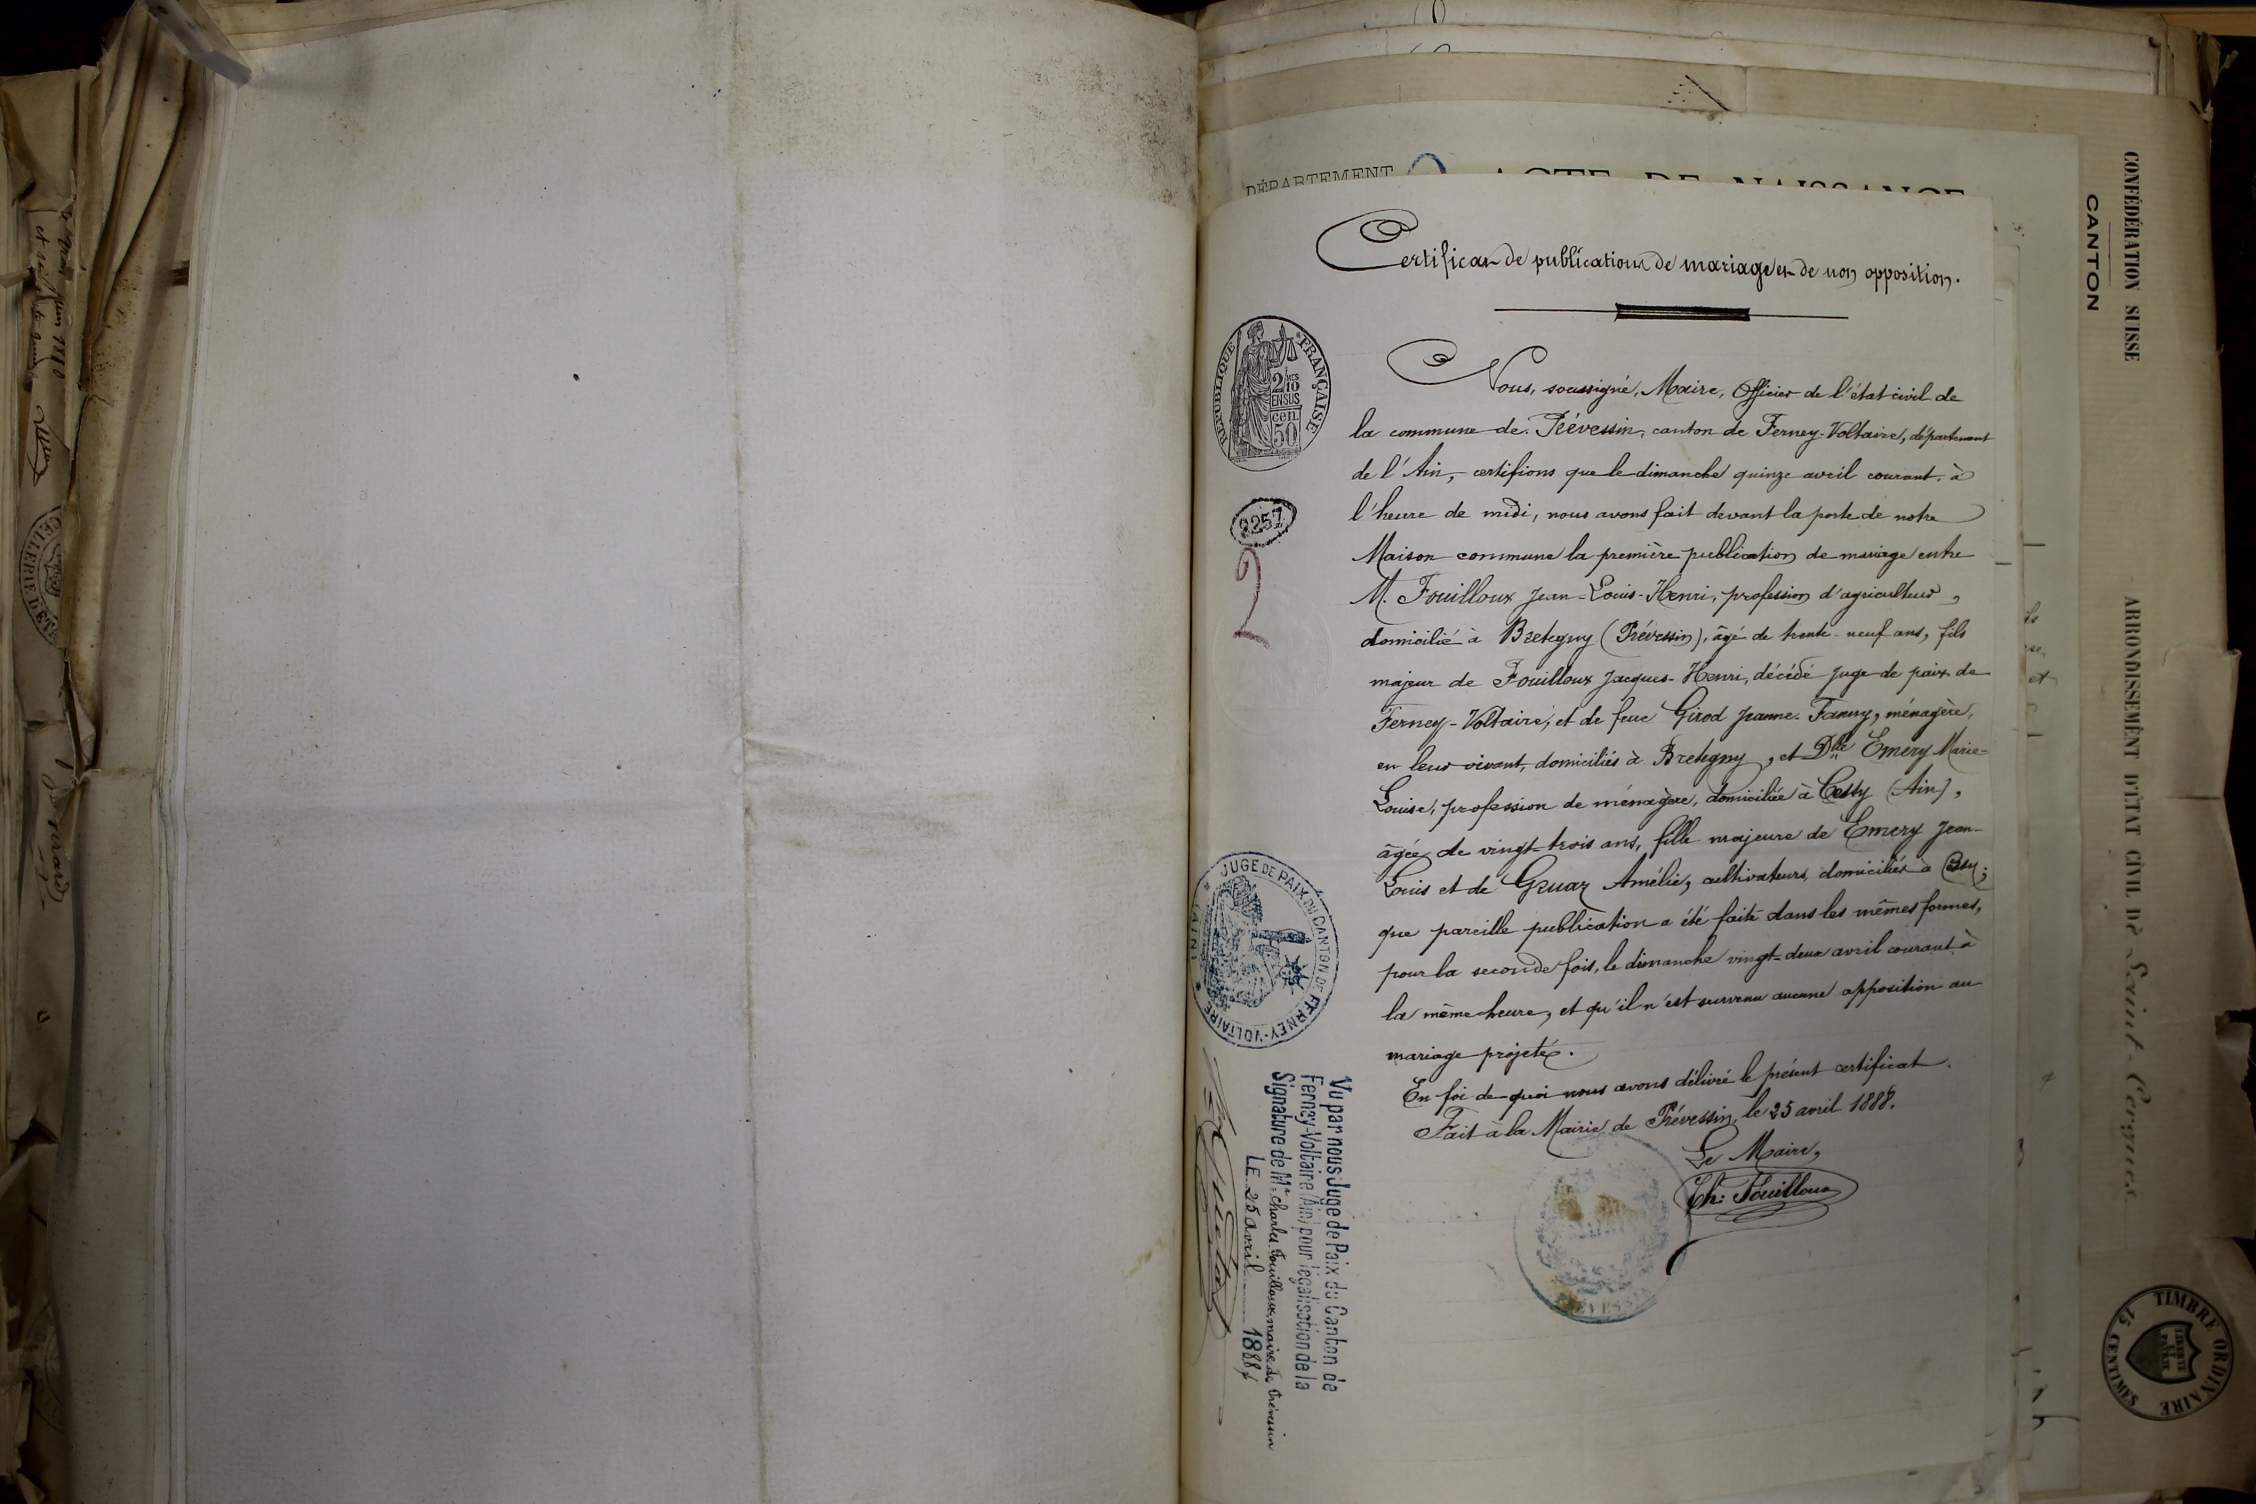 DÉPARTEMENT
ACTE DE NAISSANCE
Certificat de publications de mariage et de non opposition.
Nous, soussigné, Maire, Officier de l'état civil de
la commune de Prévessin, canton de Ferney-Voltaire, département
de l'Ain, certifions que le dimanche quinze avril courant, à
l'heure de midi, nous avons fait devant la porte de notre
Maison commune la première publication de mariage entre
M. Fouilloux Jean-Louis-Henri, profession d'agriculteur,
domicilié à Bretegny (Prévessin), âgé de trente-neuf ans, fils
majeur de Fouilloux Jacques-Henri, décédé juge de paix de
Ferney-Voltaire, et de feue Girod Jeanne-Fanny, ménagère,
en leur vivant, domiciliés à Bretegny, et Dlle Emery Marie-
Louise, profession de ménagère, domiciliée à Cessy (Ain),
âgée de vingt-trois ans, fille majeure de Emery Jean-
Louis et de Gruaz Amélie, cultivateurs, domiciliés à Cessy;
que pareille publication a été faite dans les mêmes formes,
pour la seconde fois, le dimanche vingt-deux avril courant, à
la même heure, et qu'il n'est survenu aucune opposition au
mariage projeté.
En foi de quoi nous avons délivré le présent certificat.
Fait à la Mairie de Prévessin, le 25 avril 1888.
Le Maire,
Ch: Fouilloux
PRÉVESSIN
RÉPUBLIQUE FRANÇAISE
2/10
EN SUS
50 cen.
2257
2
JUGE DE PAIX DU CANTON DE FERNEY-VOLTAIRE (AIN)
Vu par nous Juge de Paix du Canton de
Ferney-Voltaire (Ain) pour légalisation de la
Signature de Mr Charles Fouilloux, maire de Prévessin
LE 25 avril 1888
CONFÉDÉRATION SUISSE
CANTON
ARRONDISSEMENT D'ÉTAT CIVIL DE Saint-Cergues
TIMBRE ORDINAIRE
15 CENTIMES
LIBERTÉ
ET
PATRIE